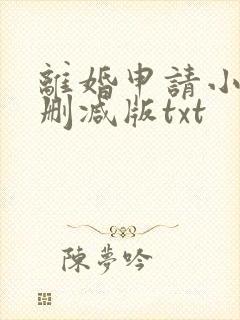 離婚申請小
刪減版txt
陳夢吟